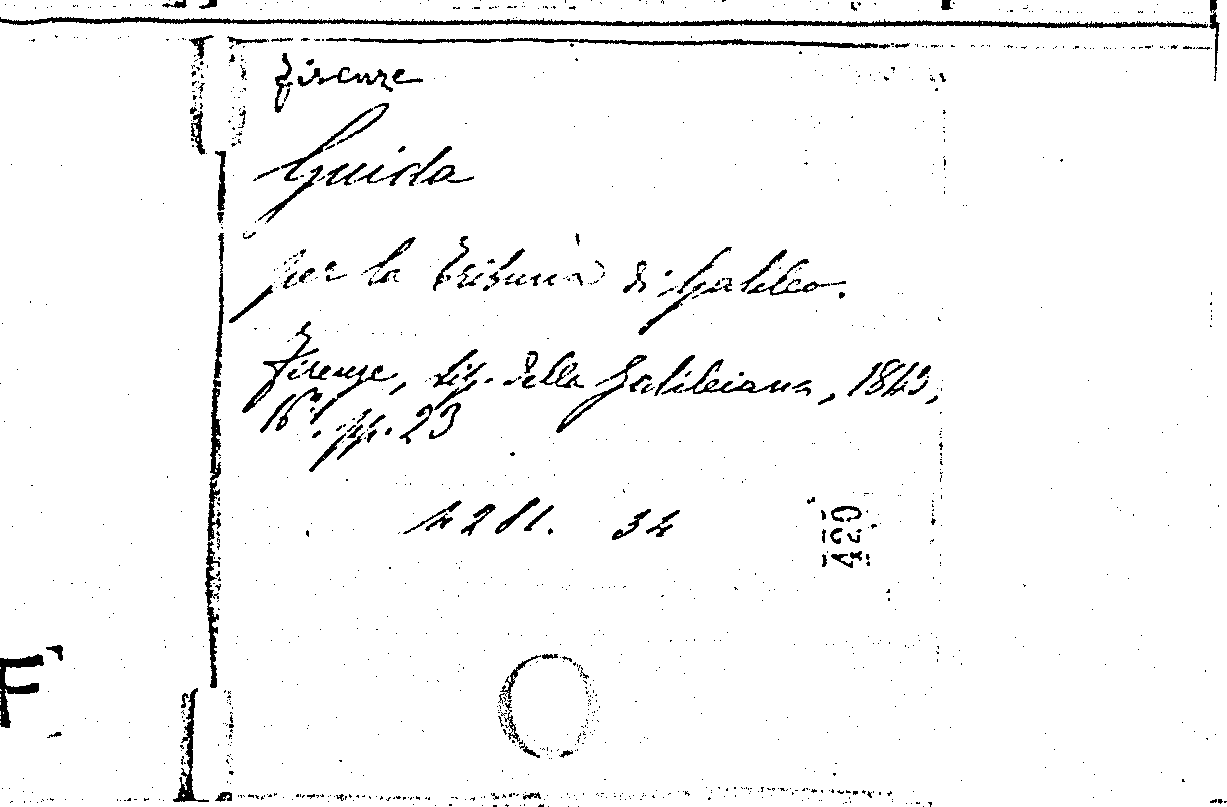 Firenze
Guida
per la Tribuna di Galileo.
Firenze, tip. della Galileiana, 1843,
16°. pp. 23
4281. 34
420
F